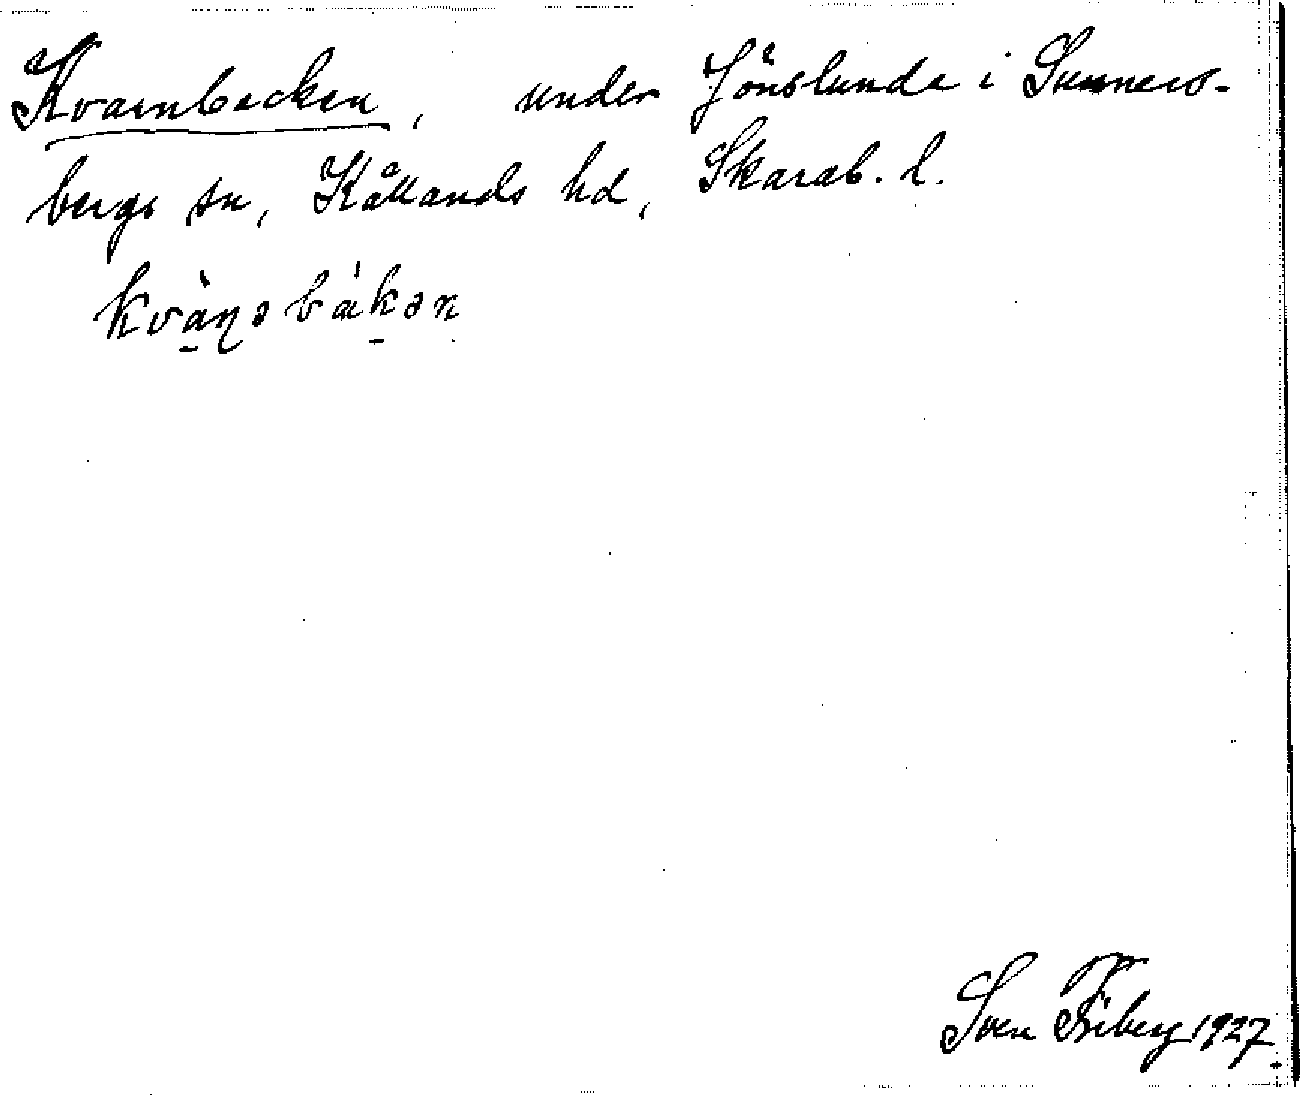 Kvarnbacken, under Jönslunda i Sunners-
bergs sn, Kållands hd, Skarab. l.
kvàṇəbákən
Sven Friberg 1927.